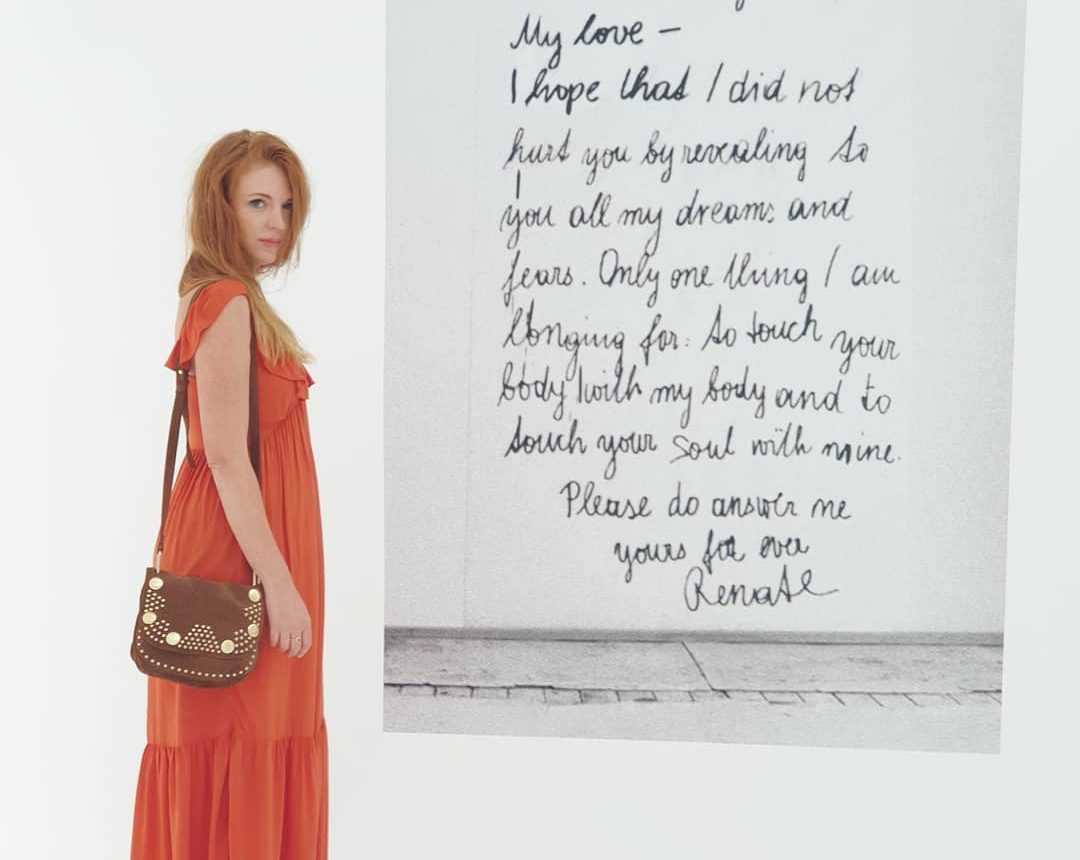 My love –
I hope that I did not
hurt you by revealing to
you all my dreams and
fears. Only one thing I am
longing for: to touch your
body with my body and to
touch your soul with mine.
Please do answer me
yours for ever
Renate